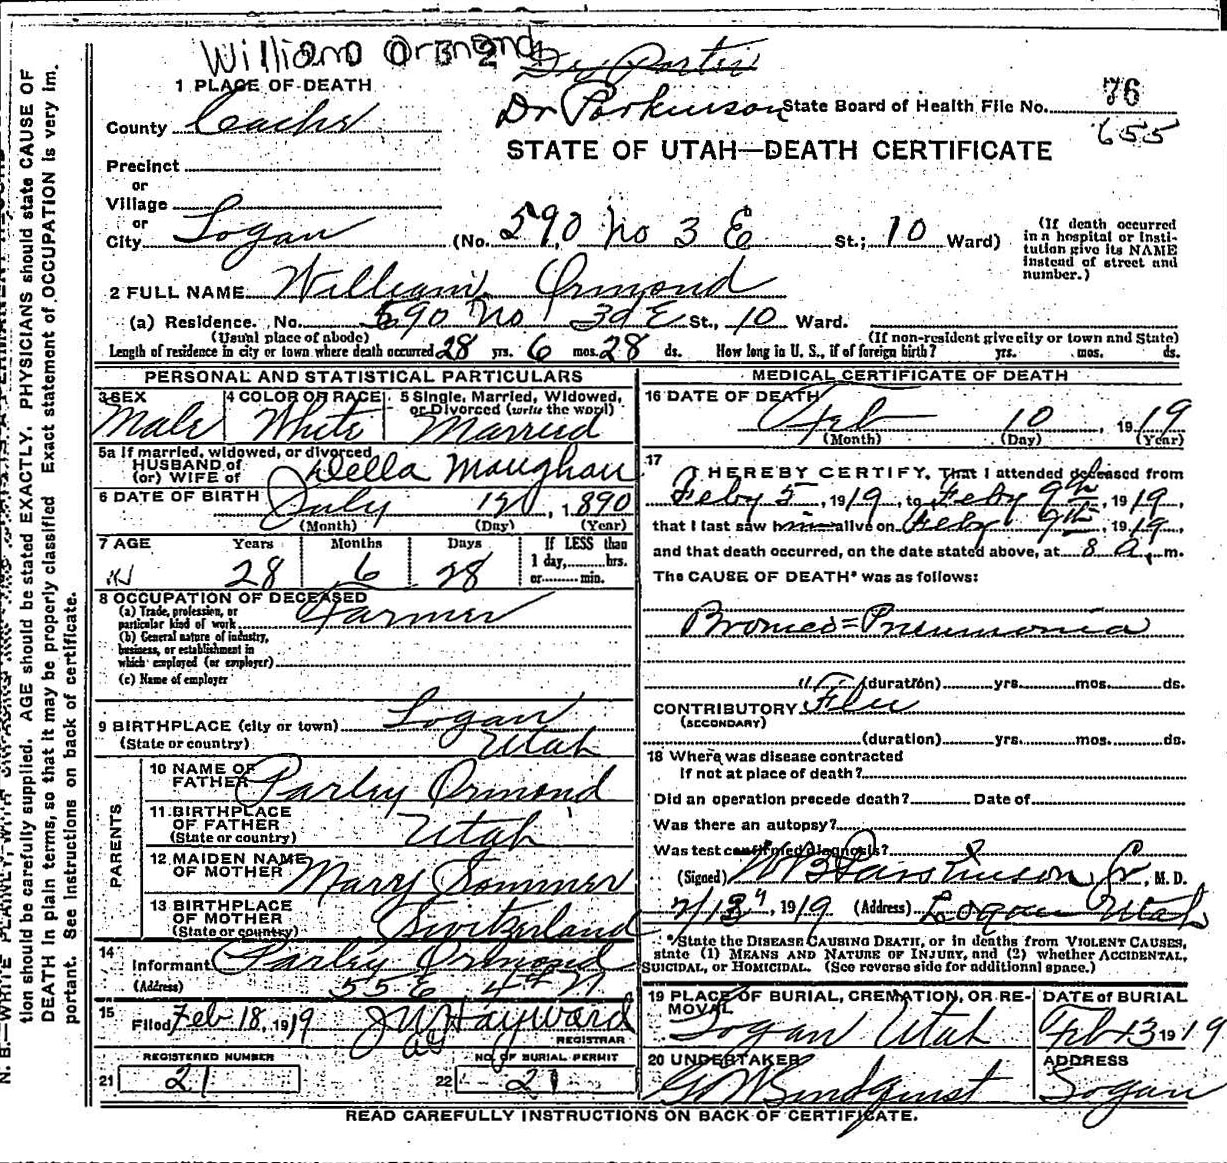 William Ormond
Dr Porter
1 PLACE OF DEATH
Dr Parkinson State Board of Health File No. 76
655
County Cache
STATE OF UTAH—DEATH CERTIFICATE
Precinct
or
Village
or
City Logan (No. 590 No 3 E St.; 10 Ward)
(If death occurred
in a hospital or insti-
tution give its NAME
instead of street and
number.)
2 FULL NAME William Ormond
(a) Residence. No. 590 No 3d E St., 10 Ward.
(Usual place of abode) (If non-resident give city or town and State)
Length of residence in city or town where death occurred 28 yrs. 6 mos. 28 ds. How long in U. S., if of foreign birth? yrs. mos. ds.
PERSONAL AND STATISTICAL PARTICULARS
3 SEX 4 COLOR OR RACE 5 Single, Married, Widowed,
or Divorced (write the word)
Male White Married
5a If married, widowed, or divorced
HUSBAND of
(or) WIFE of Della Maughan
6 DATE OF BIRTH July 12, 1890
(Month) (Day) (Year)
7 AGE Years Months Days If LESS than
1 day,........hrs.
or........min.
28 6 28
8 OCCUPATION OF DECEASED
(a) Trade, profession, or
particular kind of work Farmer
(b) General nature of industry,
business, or establishment in
which employed (or employer)
(c) Name of employer
9 BIRTHPLACE (city or town) Logan
(State or country) Utah
PARENTS
10 NAME OF
FATHER Parley Ormond
11 BIRTHPLACE
OF FATHER
(State or country) Utah
12 MAIDEN NAME
OF MOTHER Mary Sommer
13 BIRTHPLACE
OF MOTHER
(State or country) Switzerland
14
Informant Parley Ormond
(Address) 55 E 4th N
15
Filed Feb 18, 1919 J W Hayward
REGISTRAR
REGISTERED NUMBER NO. OF BURIAL PERMIT
21 21 22 21
MEDICAL CERTIFICATE OF DEATH
16 DATE OF DEATH
Feb 10, 1919
(Month) (Day) (Year)
17
I HEREBY CERTIFY, That I attended deceased from
Feby 5, 1919, to Feby 9th, 1919,
that I last saw him alive on Feby 9th, 1919,
and that death occurred, on the date stated above, at 8 A. m.
The CAUSE OF DEATH* was as follows:
Bronco=Pneumonia
(duration) yrs. mos. ds.
CONTRIBUTORY Flu
(SECONDARY)
(duration) yrs. mos. ds.
18 Where was disease contracted
if not at place of death?
Did an operation precede death? Date of
Was there an autopsy?
Was test confirmed diagnosis?
(Signed) W B Parkinson Jr, M. D.
2/13, 1919 (Address) Logan Utah
*State the DISEASE CAUSING DEATH, or in deaths from VIOLENT CAUSES,
state (1) MEANS AND NATURE OF INJURY, and (2) whether ACCIDENTAL,
SUICIDAL, or HOMICIDAL. (See reverse side for additional space.)
19 PLACE OF BURIAL, CREMATION, OR RE-
MOVAL DATE of BURIAL
Logan Utah Feb 13 1919
20 UNDERTAKER ADDRESS
Logan
READ CAREFULLY INSTRUCTIONS ON BACK OF CERTIFICATE.
N. B.—WRITE PLAINLY, WITH UNFADING
tion should be carefully supplied. AGE should be stated EXACTLY. PHYSICIANS should state CAUSE OF
DEATH in plain terms, so that it may be properly classified. Exact statement of OCCUPATION is very im.
portant. See instructions on back of certificate.